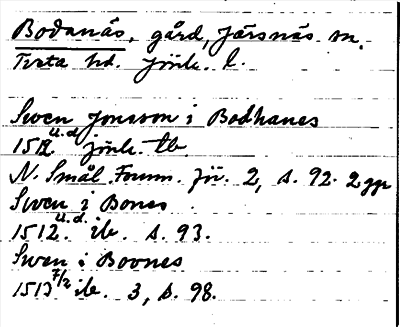 Bodanäs, gård, Järsnäs sn.
Tveta hd. Jönk. l.
Swen Jonsson i Bodhanes
1512 u.d. Jönk. tb
N. Smål. Fornm. för. 2, s. 92. 2 ggr
Swen i Bones
1512 u.d. ib. s. 93.
Swen i Boones
1513 7/2 ib. 3, s. 98.